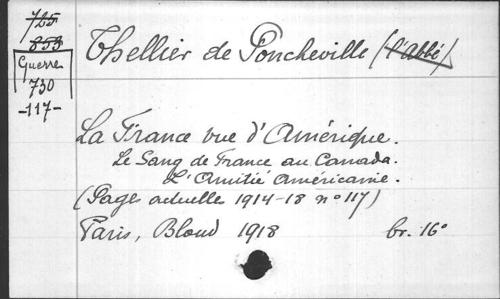 725
853
Guerre
730
-117-
Thellier de Poncheville (l'abbé)
La France vue d'Amérique.
Le Sang de France au Canada.
L'Amitié Américaine.
(Page actuelle 1914-18 n° 117)
Paris, Bloud 1918 br. 16°